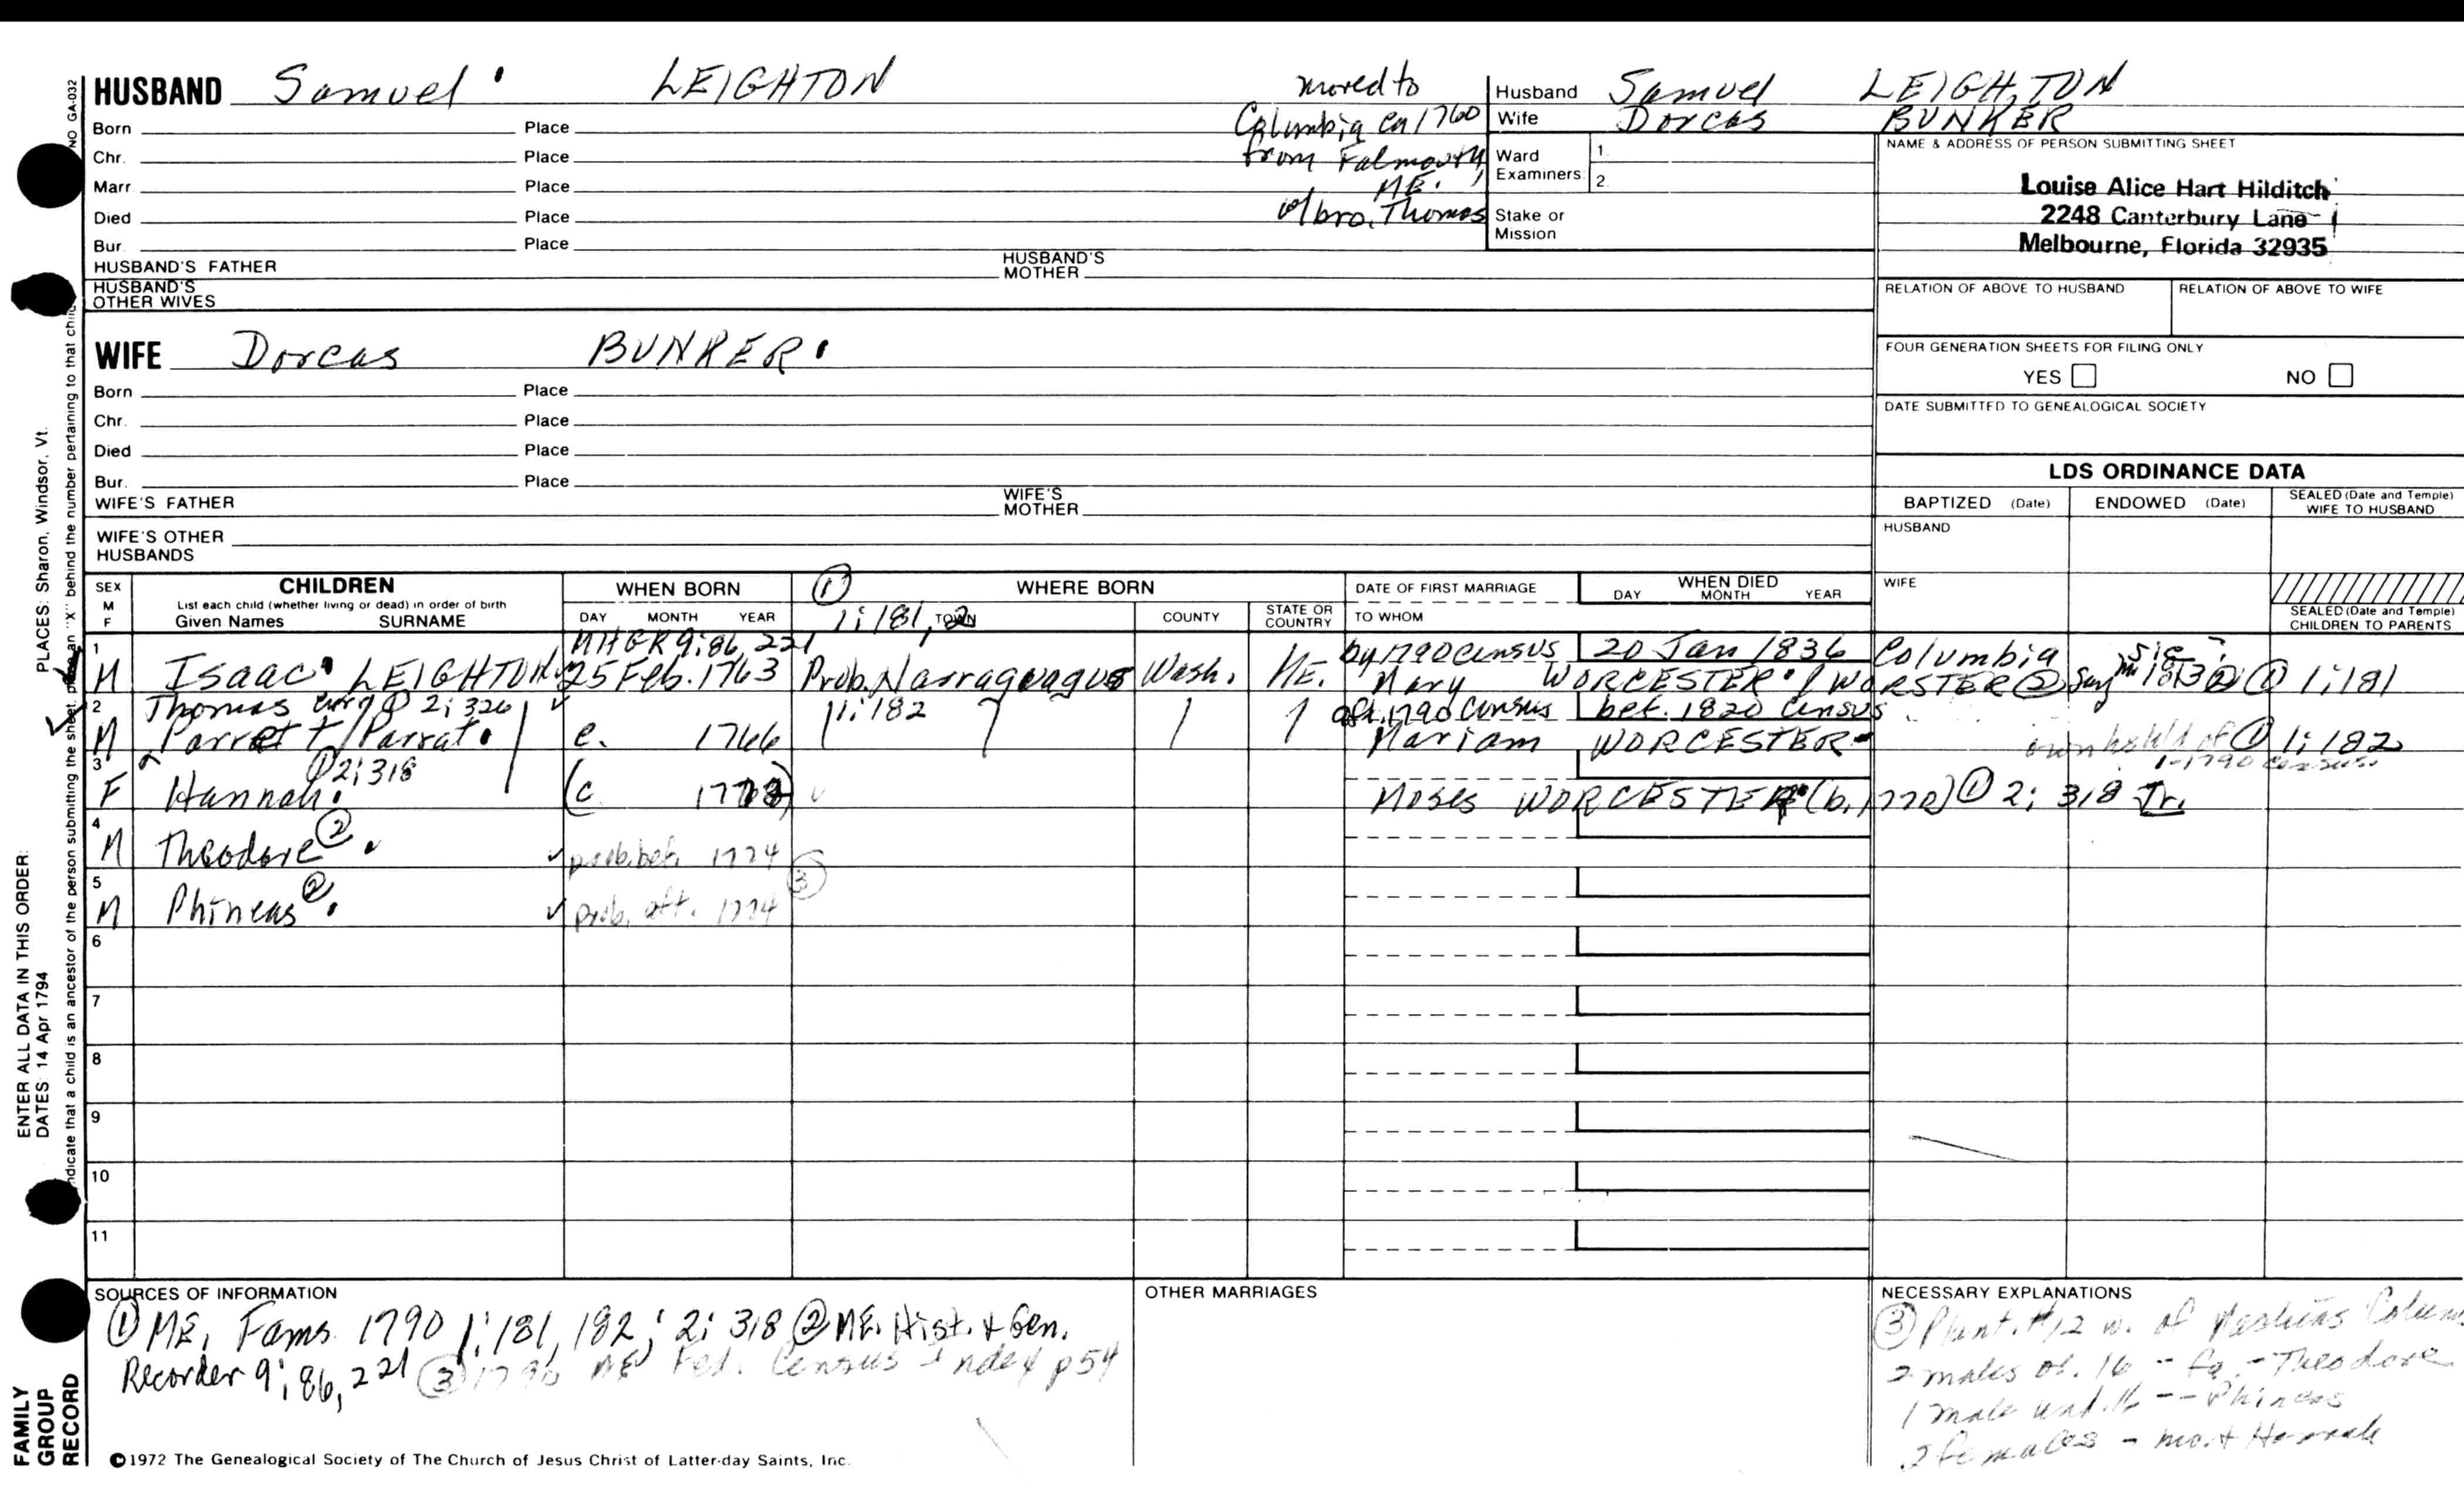 HUSBAND Samuel LEIGHTON
moved to
Columbia ca 1760
from Falmouth,
ME.
w/bro. Thomas
Born Place
Chr. Place
Marr. Place
Died Place
Bur. Place
HUSBAND'S FATHER HUSBAND'S MOTHER
HUSBAND'S OTHER WIVES
Husband Samuel LEIGHTON
Wife Dorcas BUNKER
Ward Examiners 1. 2.
Stake or Mission
NAME & ADDRESS OF PERSON SUBMITTING SHEET
Louise Alice Hart Hilditch
2248 Canterbury Lane
Melbourne, Florida 32935
RELATION OF ABOVE TO HUSBAND RELATION OF ABOVE TO WIFE
FOUR GENERATION SHEETS FOR FILING ONLY
YES NO
DATE SUBMITTED TO GENEALOGICAL SOCIETY
WIFE Dorcas BUNKER
Born Place
Chr. Place
Died Place
Bur. Place
WIFE'S FATHER WIFE'S MOTHER
WIFE'S OTHER HUSBANDS
LDS ORDINANCE DATA
BAPTIZED (Date) ENDOWED (Date) SEALED (Date and Temple) WIFE TO HUSBAND
HUSBAND
WIFE
SEALED (Date and Temple) CHILDREN TO PARENTS
SEX M F
CHILDREN
List each child (whether living or dead) in order of birth
Given Names SURNAME
WHEN BORN
DAY MONTH YEAR
① WHERE BORN
1:181,2 TOWN COUNTY STATE OR COUNTRY
DATE OF FIRST MARRIAGE
TO WHOM
WHEN DIED
DAY MONTH YEAR
MHGR 9:86, 221 by 1790 census 20 Jan 1836 Columbia sic
1 M Isaac LEIGHTON 25 Feb. 1763 Prob. Narraguagus Wash. ME. Mary WORCESTER / WORSTER ② ① 1:181
Thomas ① 2:326 1:182 aft. 1790 census bet. 1820 census
2 M Parrett/Parrat c. 1766 Mariam WORCESTER ① 1:182
1-1790 census
① 2:318
3 F Hannah (c Moses WORCESTER (b. 1770) ① 2; 318 Jr.
4 M Theodore ② prob. bef. 1774
③
5 M Phineas ② prob. aft. 1774
6
7
8
9
10
11
SOURCES OF INFORMATION
① ME. Fams. 1790 1:181, 182; 2: 318 ② ME. Hist. & Gen.
Recorder 9:86, 221 ③ 1790 ME Fed. Census Index p54
OTHER MARRIAGES
NECESSARY EXPLANATIONS
③ Plant. #12 w. of Machias
2 males ov. 16 - fa - Theodore
1 male und. 16 -- Phineas
2 females - mo. & Hannah
©1972 The Genealogical Society of The Church of Jesus Christ of Latter-day Saints, Inc.
FAMILY
GROUP
RECORD
ENTER ALL DATA IN THIS ORDER:
DATES: 14 Apr 1794
PLACES: Sharon, Windsor, Vt.
indicate that a child is an ancestor of the person submitting the sheet, an "X" behind the number pertaining to that
NO GA-032